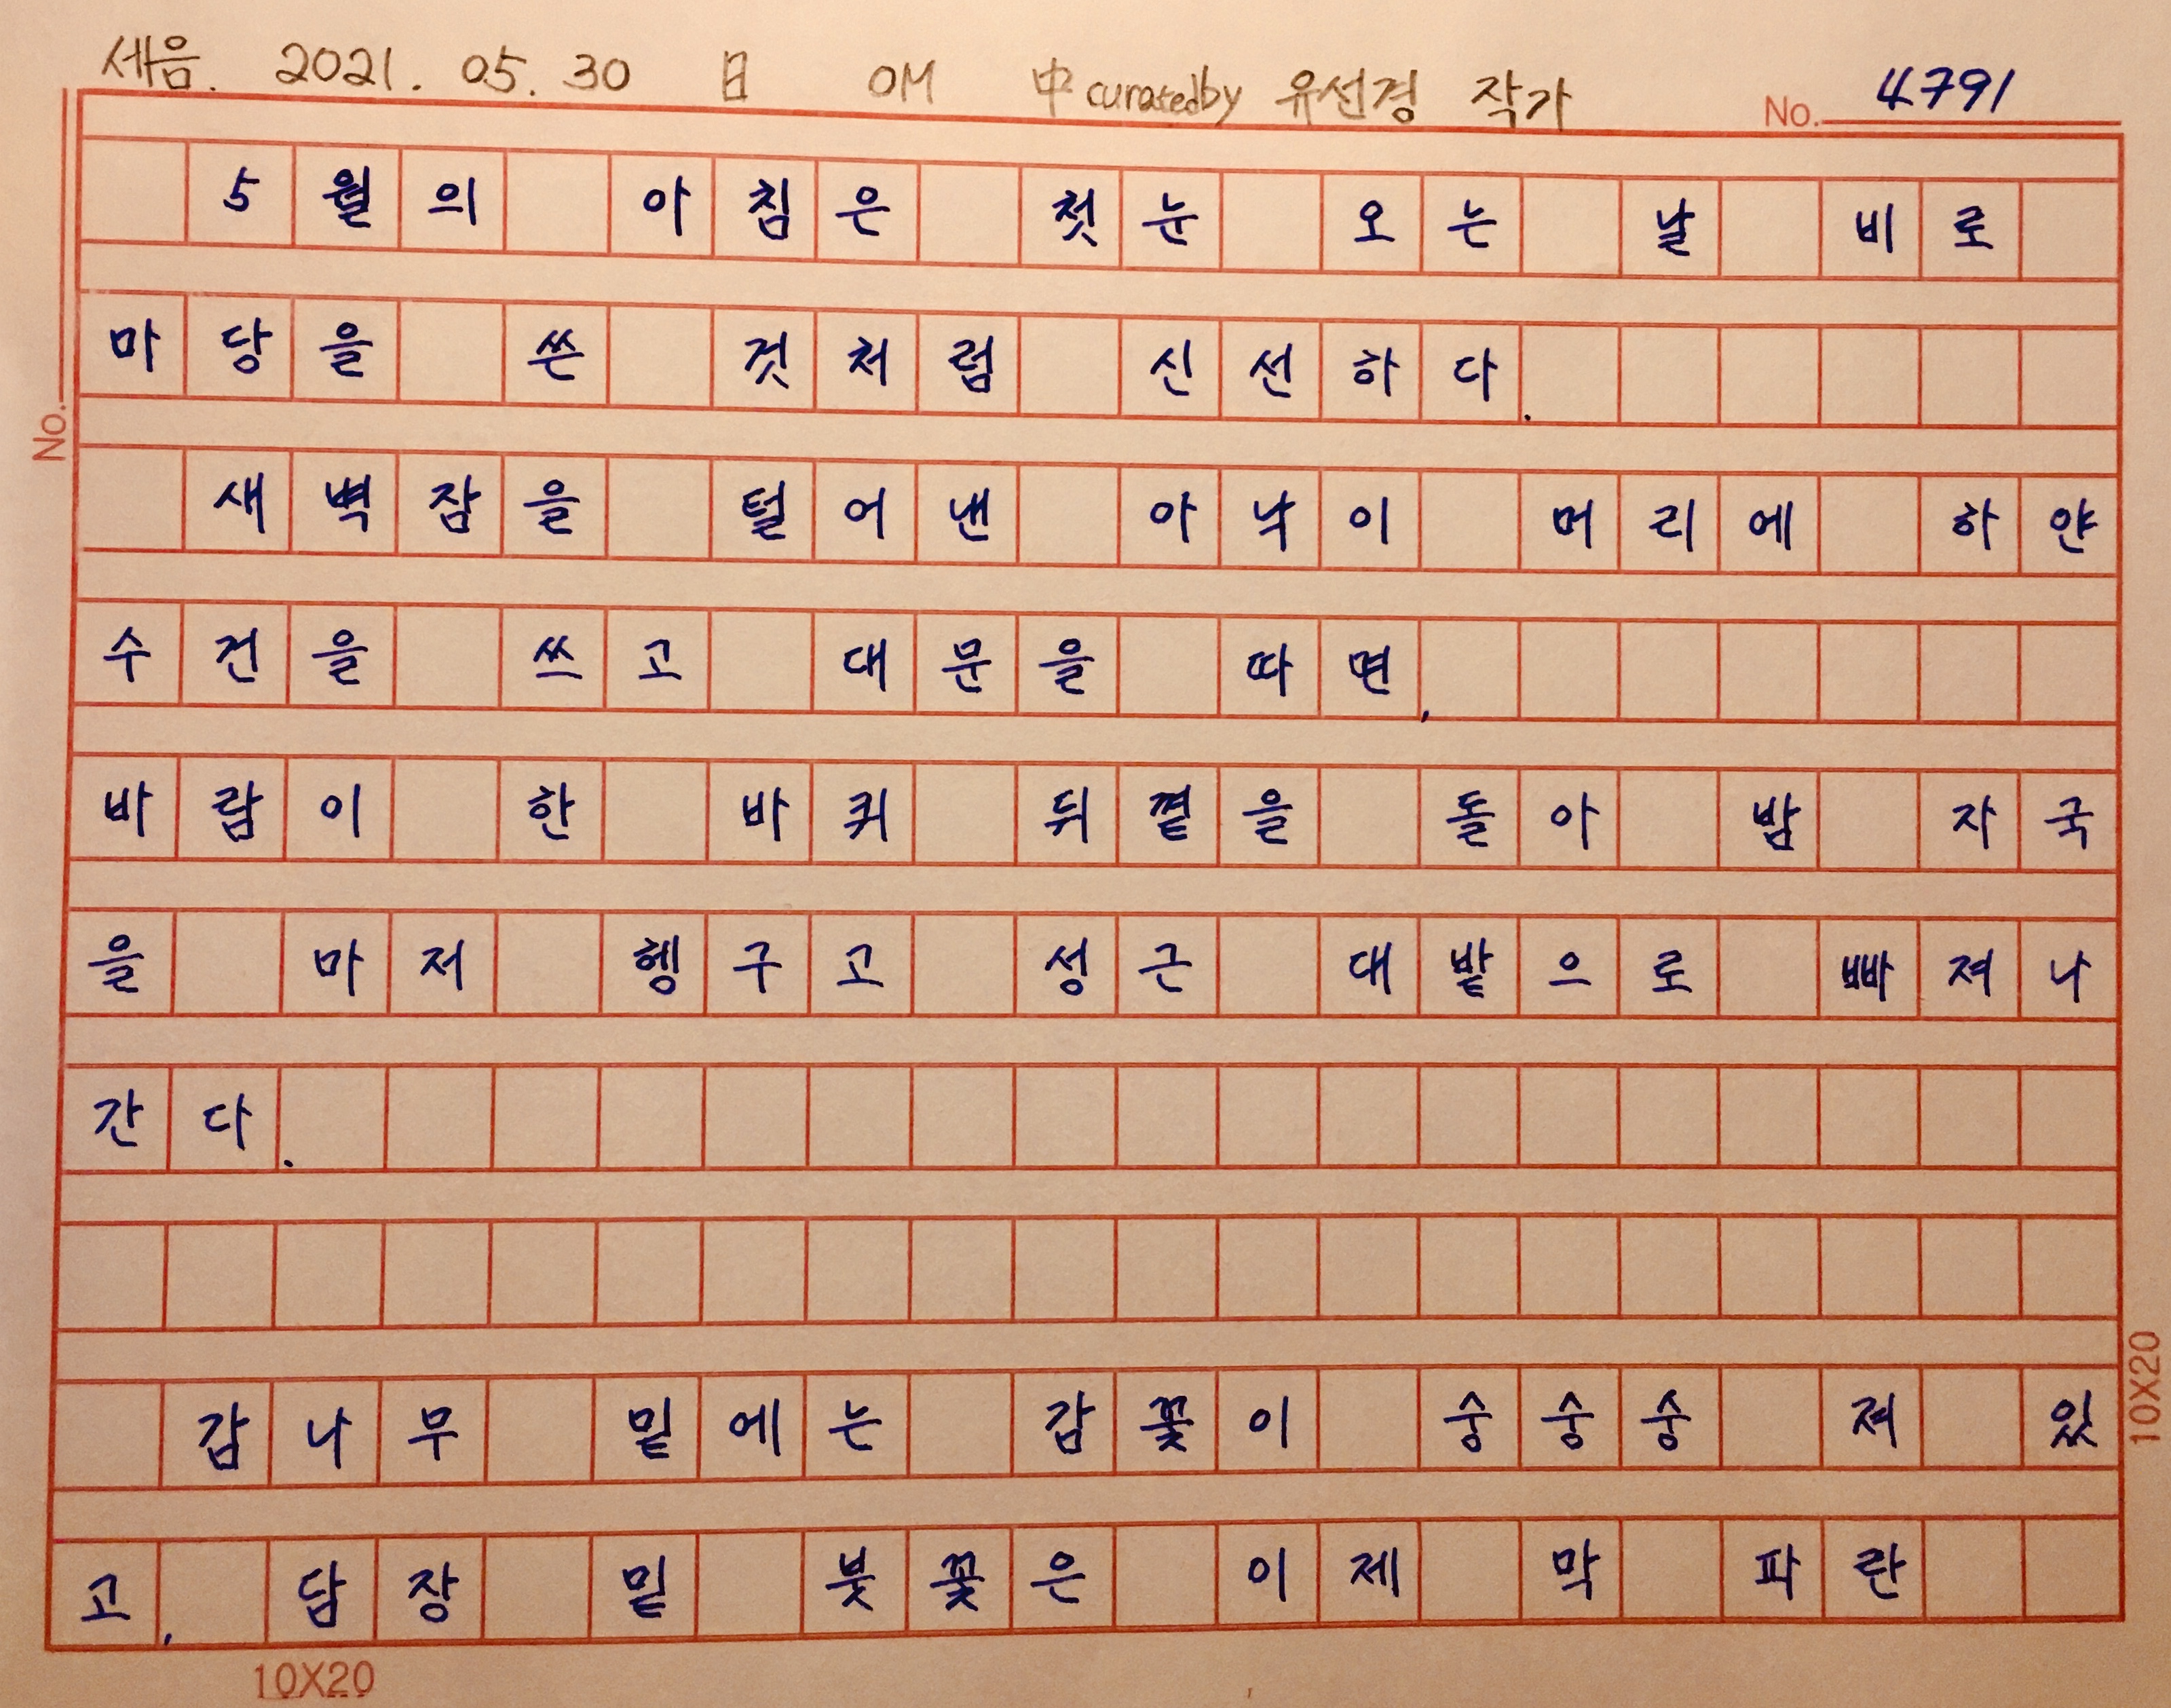 세음. 2021. 05. 30 日 OM 中 curatedby 유선경 작가
No. 4791
5월의 아침은 첫눈 오는 날 비로
마당을 쓴 것처럼 신선하다.
No.
새벽잠을 털어낸 아낙이 머리에 하얀
수건을 쓰고 대문을 따면,
바람이 한 바퀴 뒤꼍을 돌아 밤 자국
을 마저 헹구고 성근 대밭으로 빠져나
간다.
감나무 밑에는 감꽃이 숭숭숭 져 있
고, 담장 밑 붓꽃은 이제 막 파란
10X20
10X20